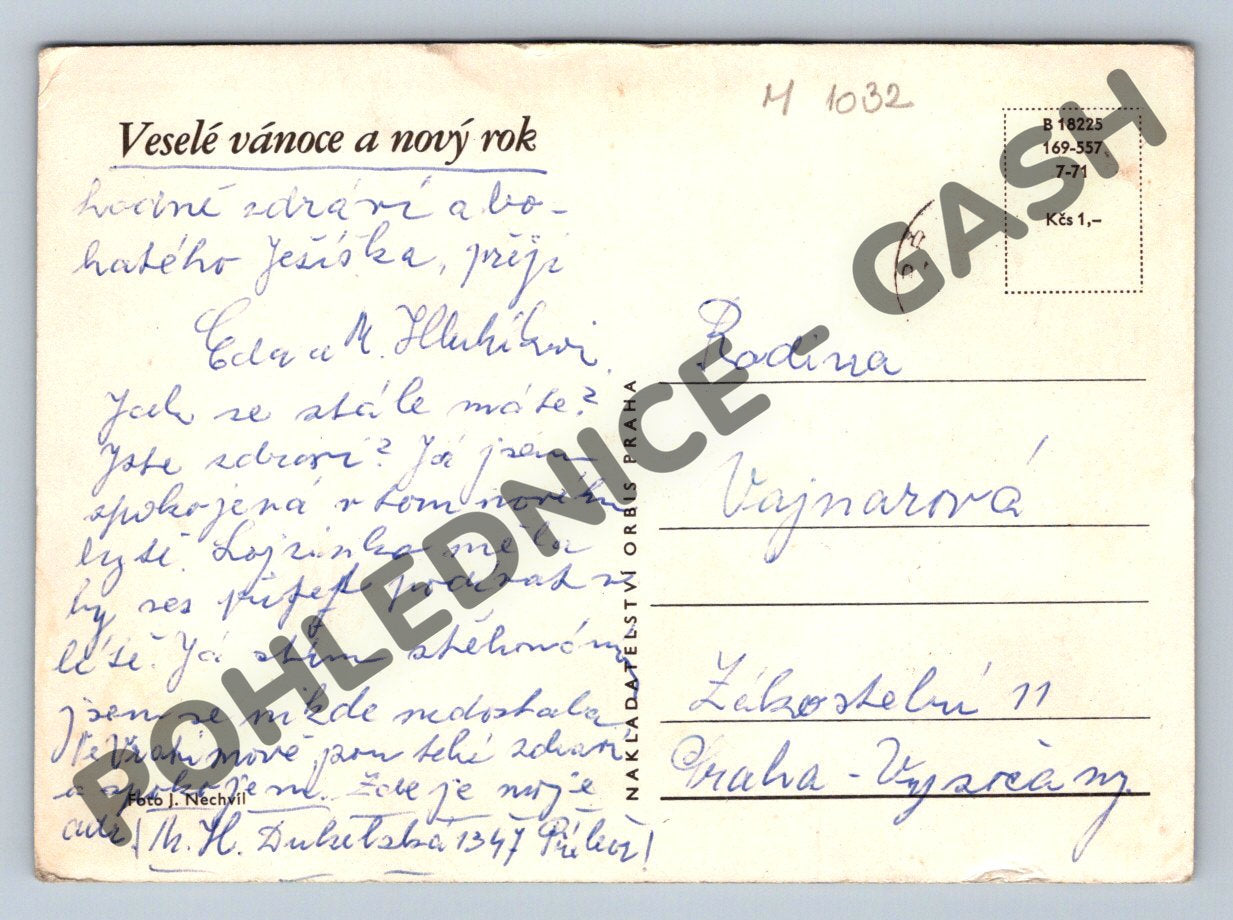 M 1032
B 18225
169-557
7-71
Kčs 1,–
Veselé vánoce a nový rok
hodně zdraví a bo-
hatého Ježíška, přeji
Eda a M.
Jak se stále máte?
Jste zdraví? Já jsem
spokojená v tom novém
bytě. měla
by ses přijet podívat v
létě. Já stím stěhováním
jsem se nikde nedostala
Ve Vratimově jsou také zdraví
a spokojeni. Zde je moje
adr. (M. H. Dukelská 1347 )
Foto J. Nechvíl
NAKLADATELSTVÍ ORBIS PRAHA
Rodina
Vajnarová
Zákostelní 11
Praha - Vysočany
POHLEDNICE - GASH